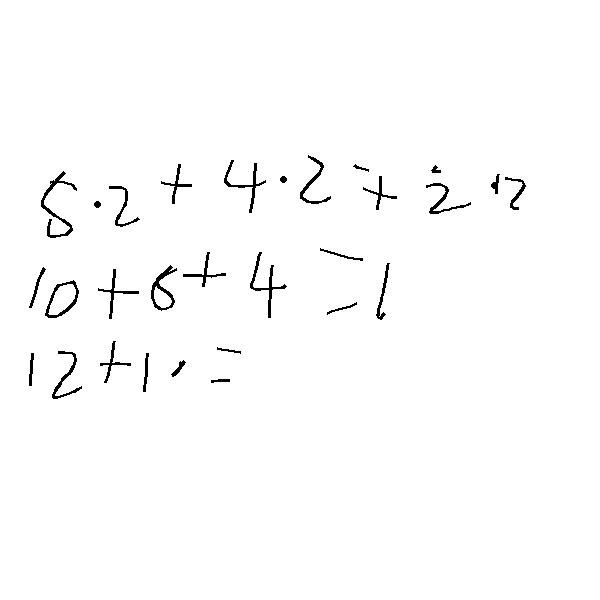 5·2 + 4·2 + 2·2
10 + 6 + 4 = 1
12 + 1 · =